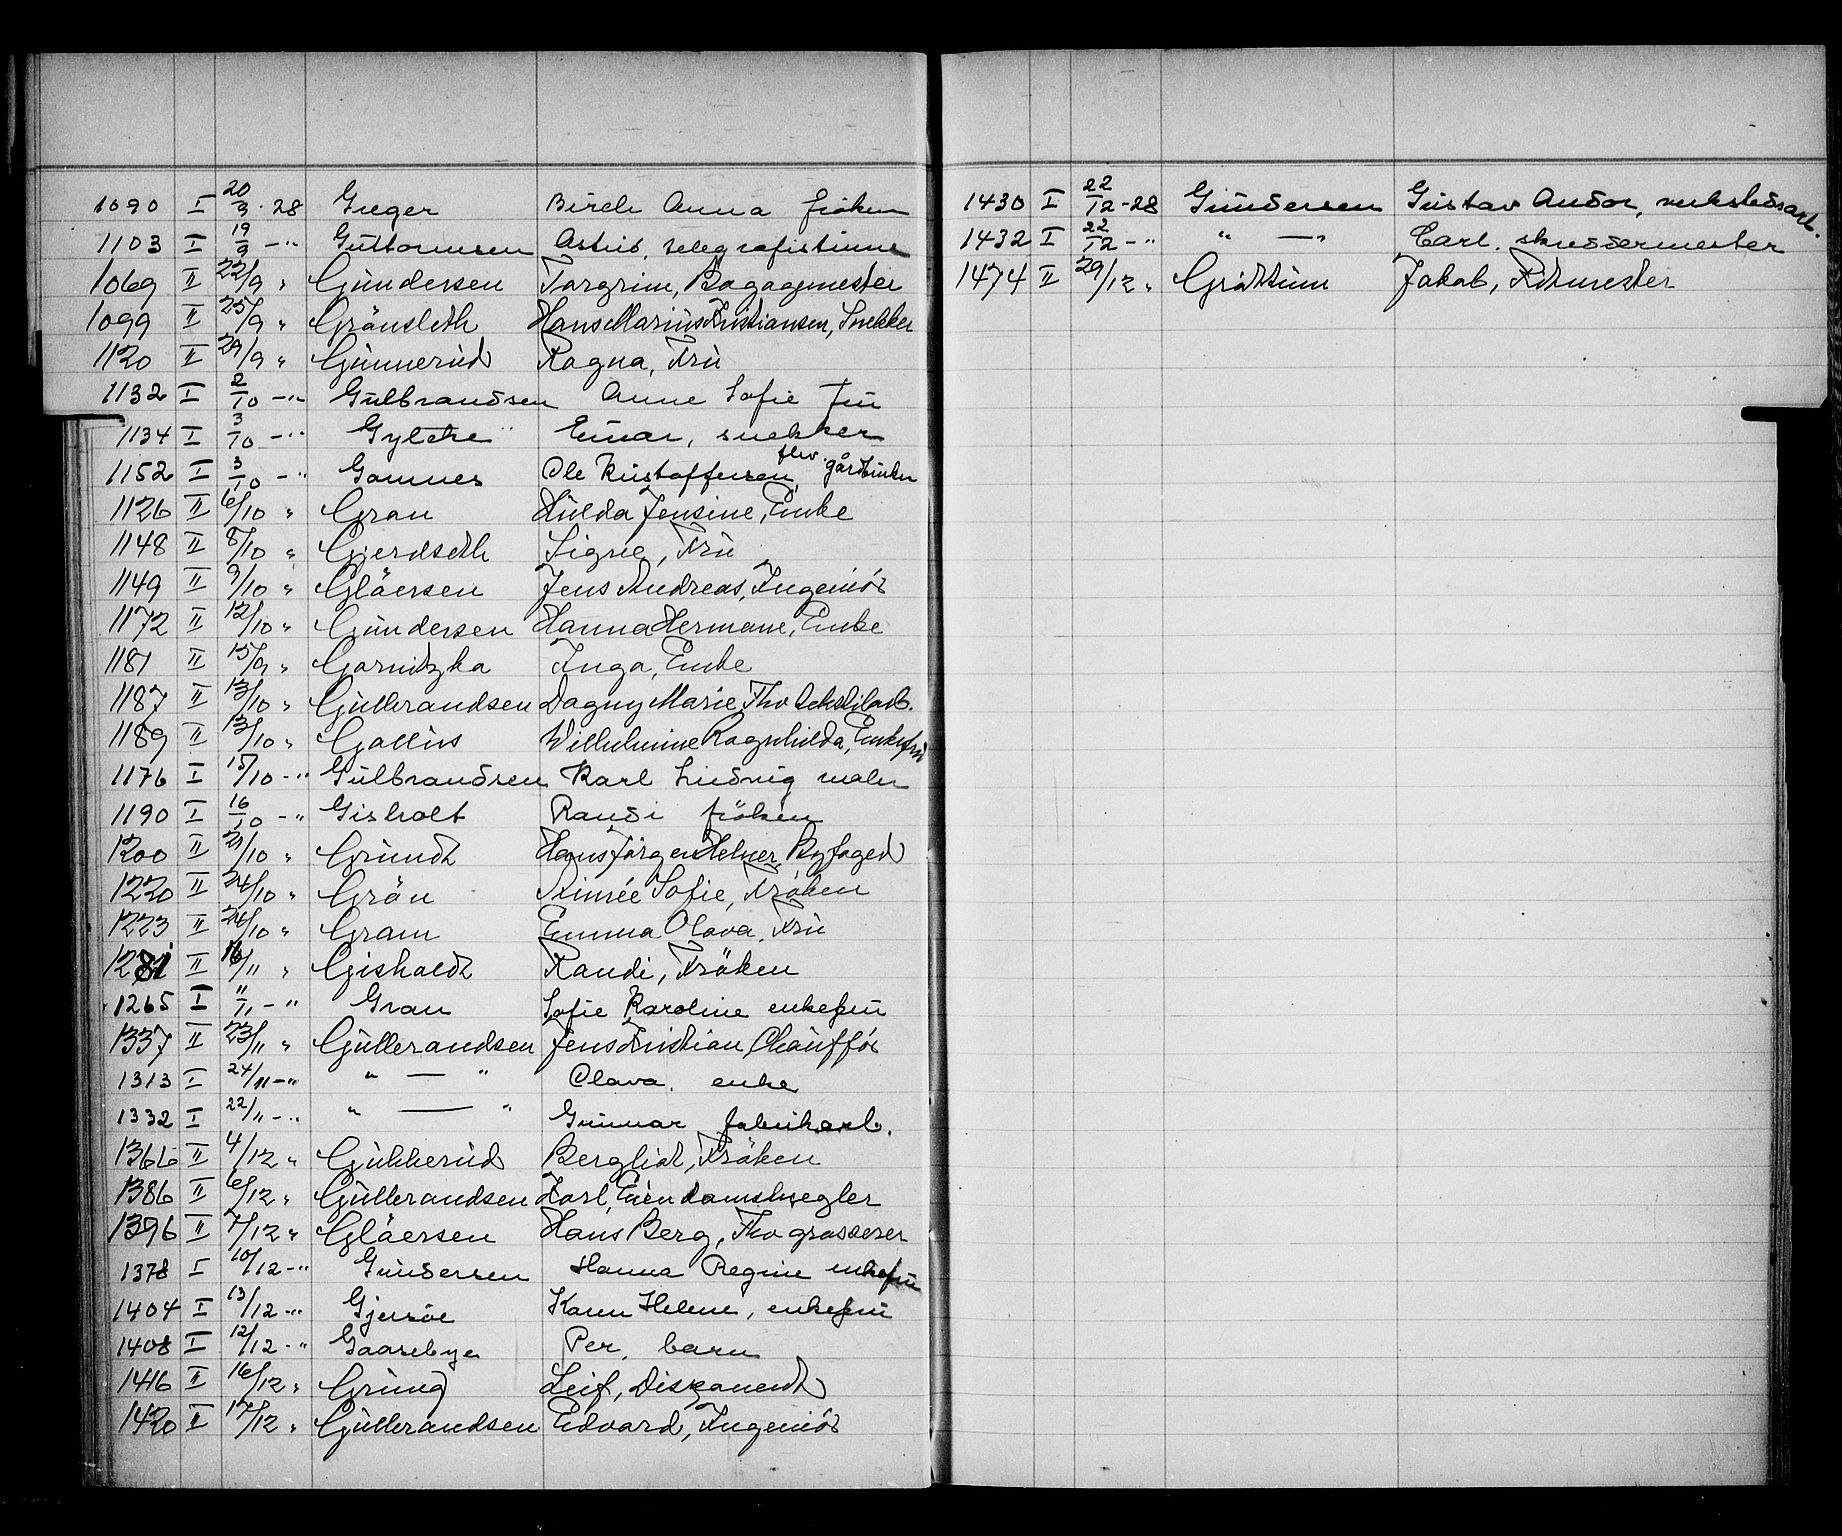 1090 I 20/9 - 28 Greger Birch Anna frøken
1103 I 19/9 - " Guttormsen Astrid, telegrafistinne
1069 II 22/9 " Gundersen Torgrim, Bagagemester
1099 II 25/9 " Grönsleth Hans Marius Kristiansen, Snekker
1120 II 29/9 " Gunnerud Ragna, Fru
1132 I 2/10 - " Gulbrandsen Anne Sofie fru
1134 I 3/10 - " Gylche Einar, snekker
1152 I 3/10 - " Gamnes Ole Kristoffersen, fhv. gårdbruker
1126 II 6/10 " Gran Hulda Jensine, Enke
1148 II 8/10 " Gjerdseth Signe, Fru
1149 II 9/10 " Gläersen Jens Andreas, Ingeniör
1172 II 12/10 " Gundersen Hanna Hermane, Enke
1181 II 15/9 " Garnitzka Inga, Enke
1187 II 13/10 " Gulbrandsen Dagny Marie, Fhv tekstilarb.
1189 II 13/10 " Gallus Wilhelmine Ragnhilda, Enkefru
1176 I 15/10 - " Gulbrandsen Karl Ludvig maler
1190 I 16/10 - " Gisholt Randi frøken
1200 II 21/10 " Grundt Hans Jörgen Helner, Byfoged
1220 II 24/10 " Grön Aimée Sofie, Fröken
1223 II 24/10 " Gram Emma Olava, Fru
1281 II 16/11 " Gisholdt Randi, Fröken
1265 I "/11 - " Gran Sofie Karoline enkefru
1337 II 23/11 " Gulbrandsen Jens Kristian, Chaufför
1313 I 24/11 - " " — " Olava, enke
1332 I 22/11 - " " — " Gunnar fabrikarb.
1366 II 4/12 " Gukkerud Bergliot, Fröken
1386 II 6/12 " Gulbrandsen Karl, Eiendomsmegler
1396 II 7/12 " Gläersen Hans Berg, Fhv grosserer
1378 I 10/12 - " Gundersen Hanna Regine enkefru
1404 I 13/12 - " Gjersøe Karen Helene, enkefru
1408 I 12/12 - " Gaarebye Per, barn
1416 II 16/12 " Grung Leif, Disponent
1420 II 17/12 " Gulbrandsen Edvard, Ingeniör
1430 I 22/12 - 28 Gundersen Gustav Andor, verkstedsarb.
1432 I 22/12 - " " — " Carl, skreddermester
1474 II 29/12 " Gröttum Jakob, Ritmester